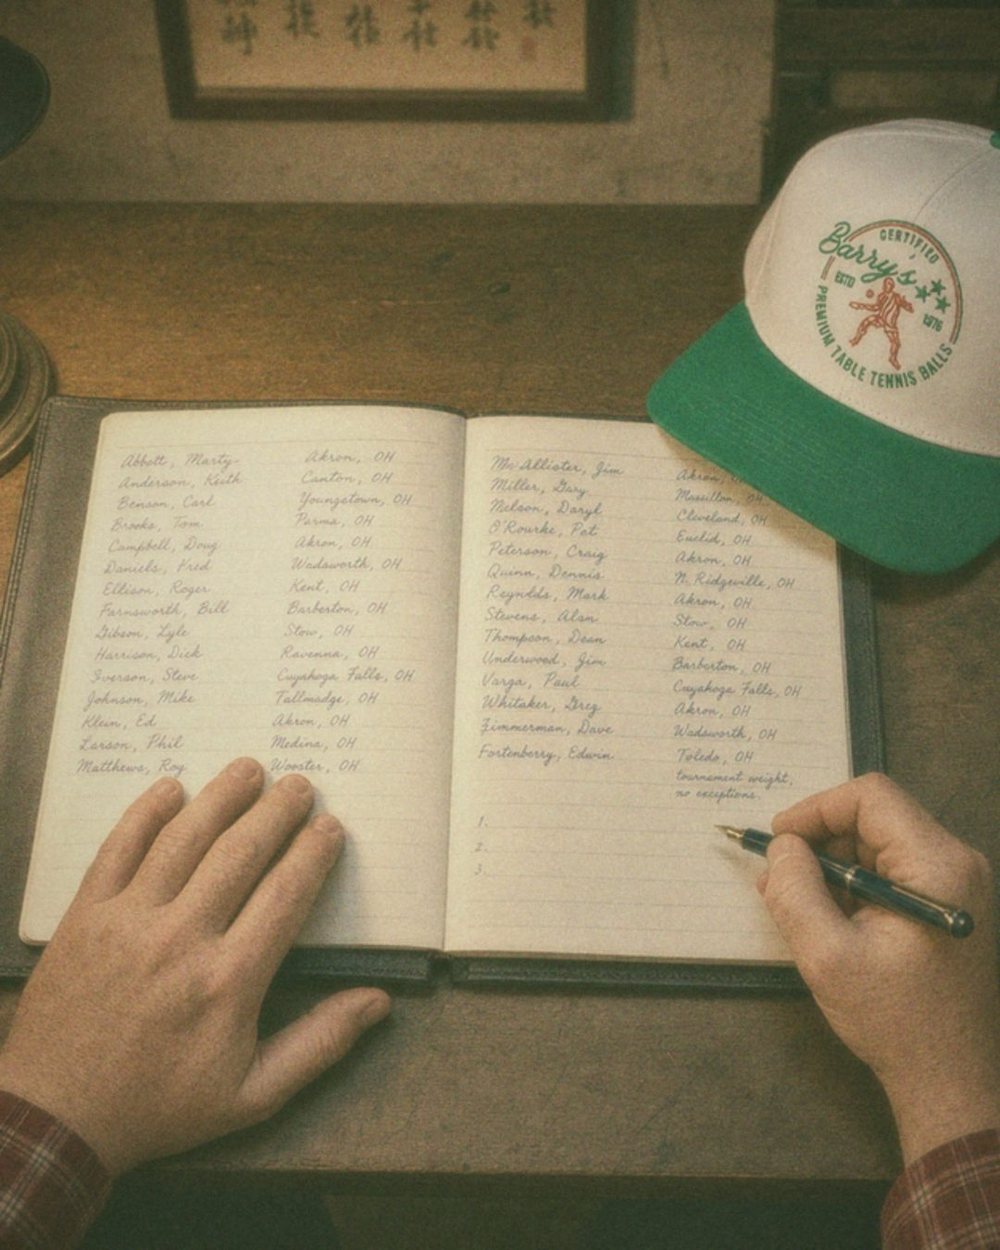 CERTIFIED
Barry's
ESTD
1976
PREMIUM TABLE TENNIS BALLS
Abbott, Marty Akron, OH
Anderson, Keith Canton, OH
Benson, Carl Youngstown, OH
Brooks, Tom Parma, OH
Campbell, Doug Akron, OH
Daniels, Fred Wadsworth, OH
Ellison, Roger Kent, OH
Farnsworth, Bill Barberton, OH
Gibson, Lyle Stow, OH
Harrison, Dick Ravenna, OH
Iverson, Steve Cuyahoga Falls, OH
Johnson, Mike Tallmadge, OH
Klein, Ed Akron, OH
Larson, Phil Medina, OH
Matthews, Roy Wooster, OH
McAllister, Jim Akron,
Miller, Gary Massillon, OH
Nelson, Daryl Cleveland, OH
O'Rourke, Pat Euclid, OH
Peterson, Craig Akron, OH
Quinn, Dennis N. Ridgeville, OH
Reynolds, Mark Akron, OH
Stevens, Alan Stow, OH
Thompson, Dean Kent, OH
Underwood, Jim Barberton, OH
Varga, Paul Cuyahoga Falls, OH
Whitaker, Greg Akron, OH
Zimmerman, Dave Wadsworth, OH
Fortenberry, Edwin Toledo, OH
tournament weight,
no exceptions.
1.
2.
3.